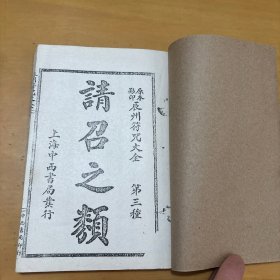 原本影印
辰州符咒大全
第三種
請召之類
上海中西書局發行